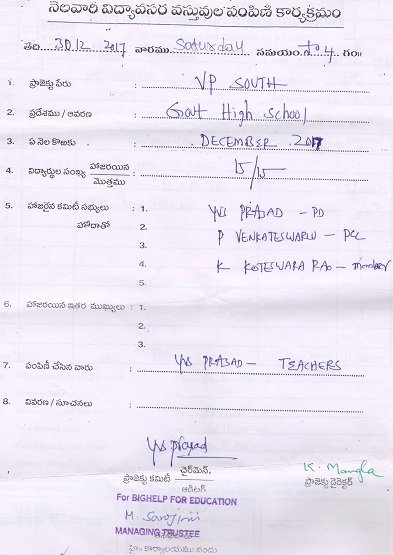 నెలవారీ విద్యావసర వస్తువుల పంపిణి కార్యక్రమం
తేది 30.12.2017 వారము Saturday సమయం సా 4 గం॥
1. ప్రాజెక్టు పేరు : VP SOUTH
2. ప్రదేశము / ఆవరణ : Govt High School
3. ఏ నెల కొఱకు : DECEMBER 2017
4. విద్యార్థుల సంఖ్య హాజరయిన / మొత్తము : 15/15
5. హాజరైన కమిటీ సభ్యులు : 1. YVS PRASAD - PD
హోదాతో 2. P VENKATESWARLU - PCC
3.
4. K KOTESWARA RAO - member
5.
6. హాజరయిన ఇతర ముఖ్యులు : 1.
2.
3.
7. పంపిణీ చేసిన వారు : YVS PRASAD - TEACHERS
8. వివరణ / సూచనలు :
YVS Prasad
ప్రాజెక్టు కమిటీ ఛైర్మెన్, / ఆడిటర్
K. Mangla
ప్రాజెక్టు డైరెక్టర్
For BIGHELP FOR EDUCATION
M. Sarojini
MANAGING TRUSTEE